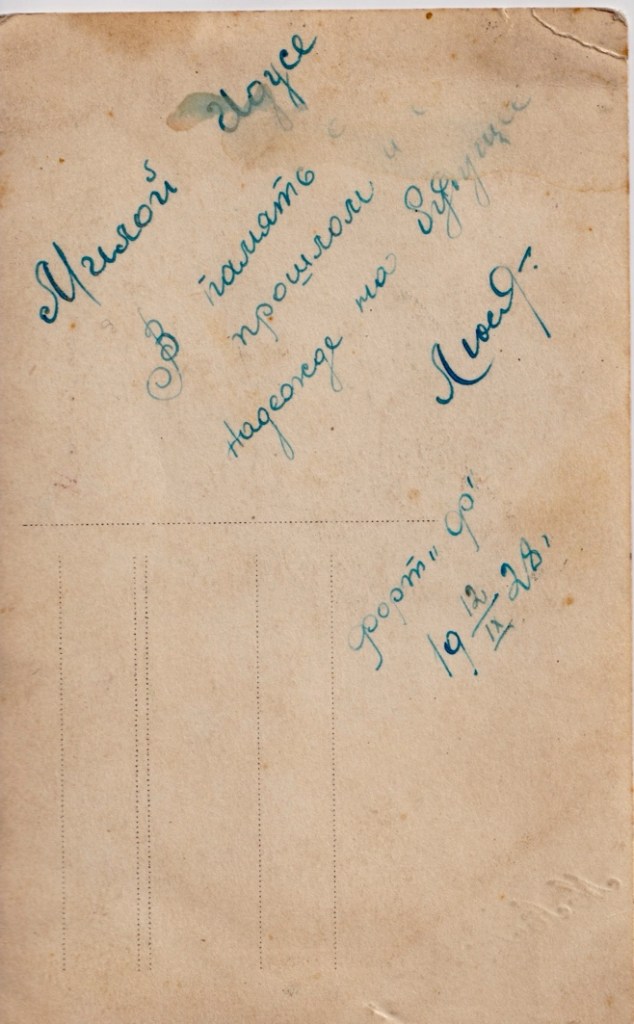 Милой Идусе
В память
прошлом и
надежде на будуще
Люся.
Форт "Ф"
19 12/IX 28.